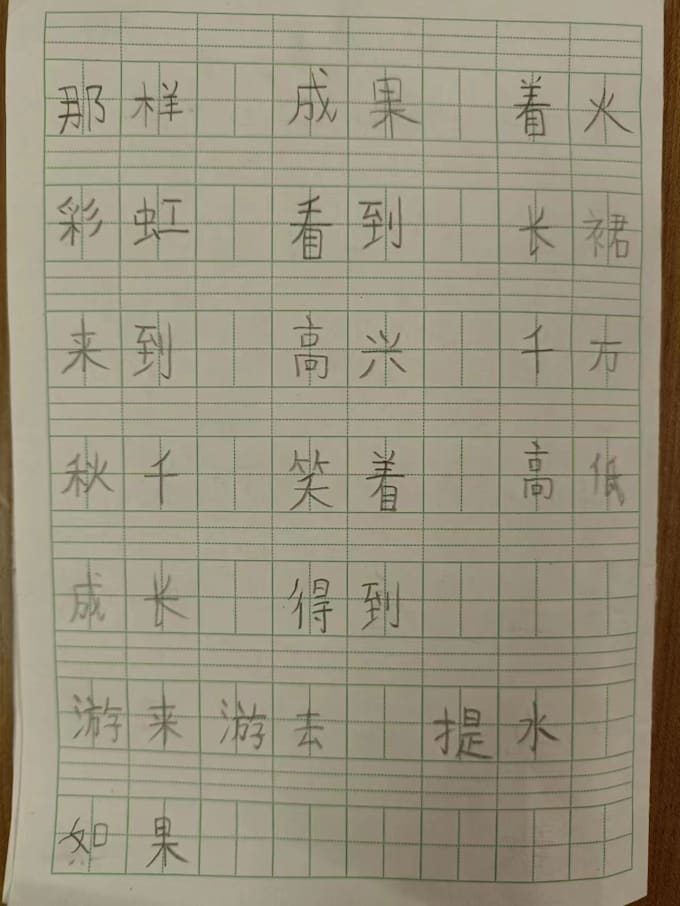 那样 成果 着火
彩虹 看到 长裙
来到 高兴 千万
秋千 笑着 高低
成长 得到
游来游去 提水
如果